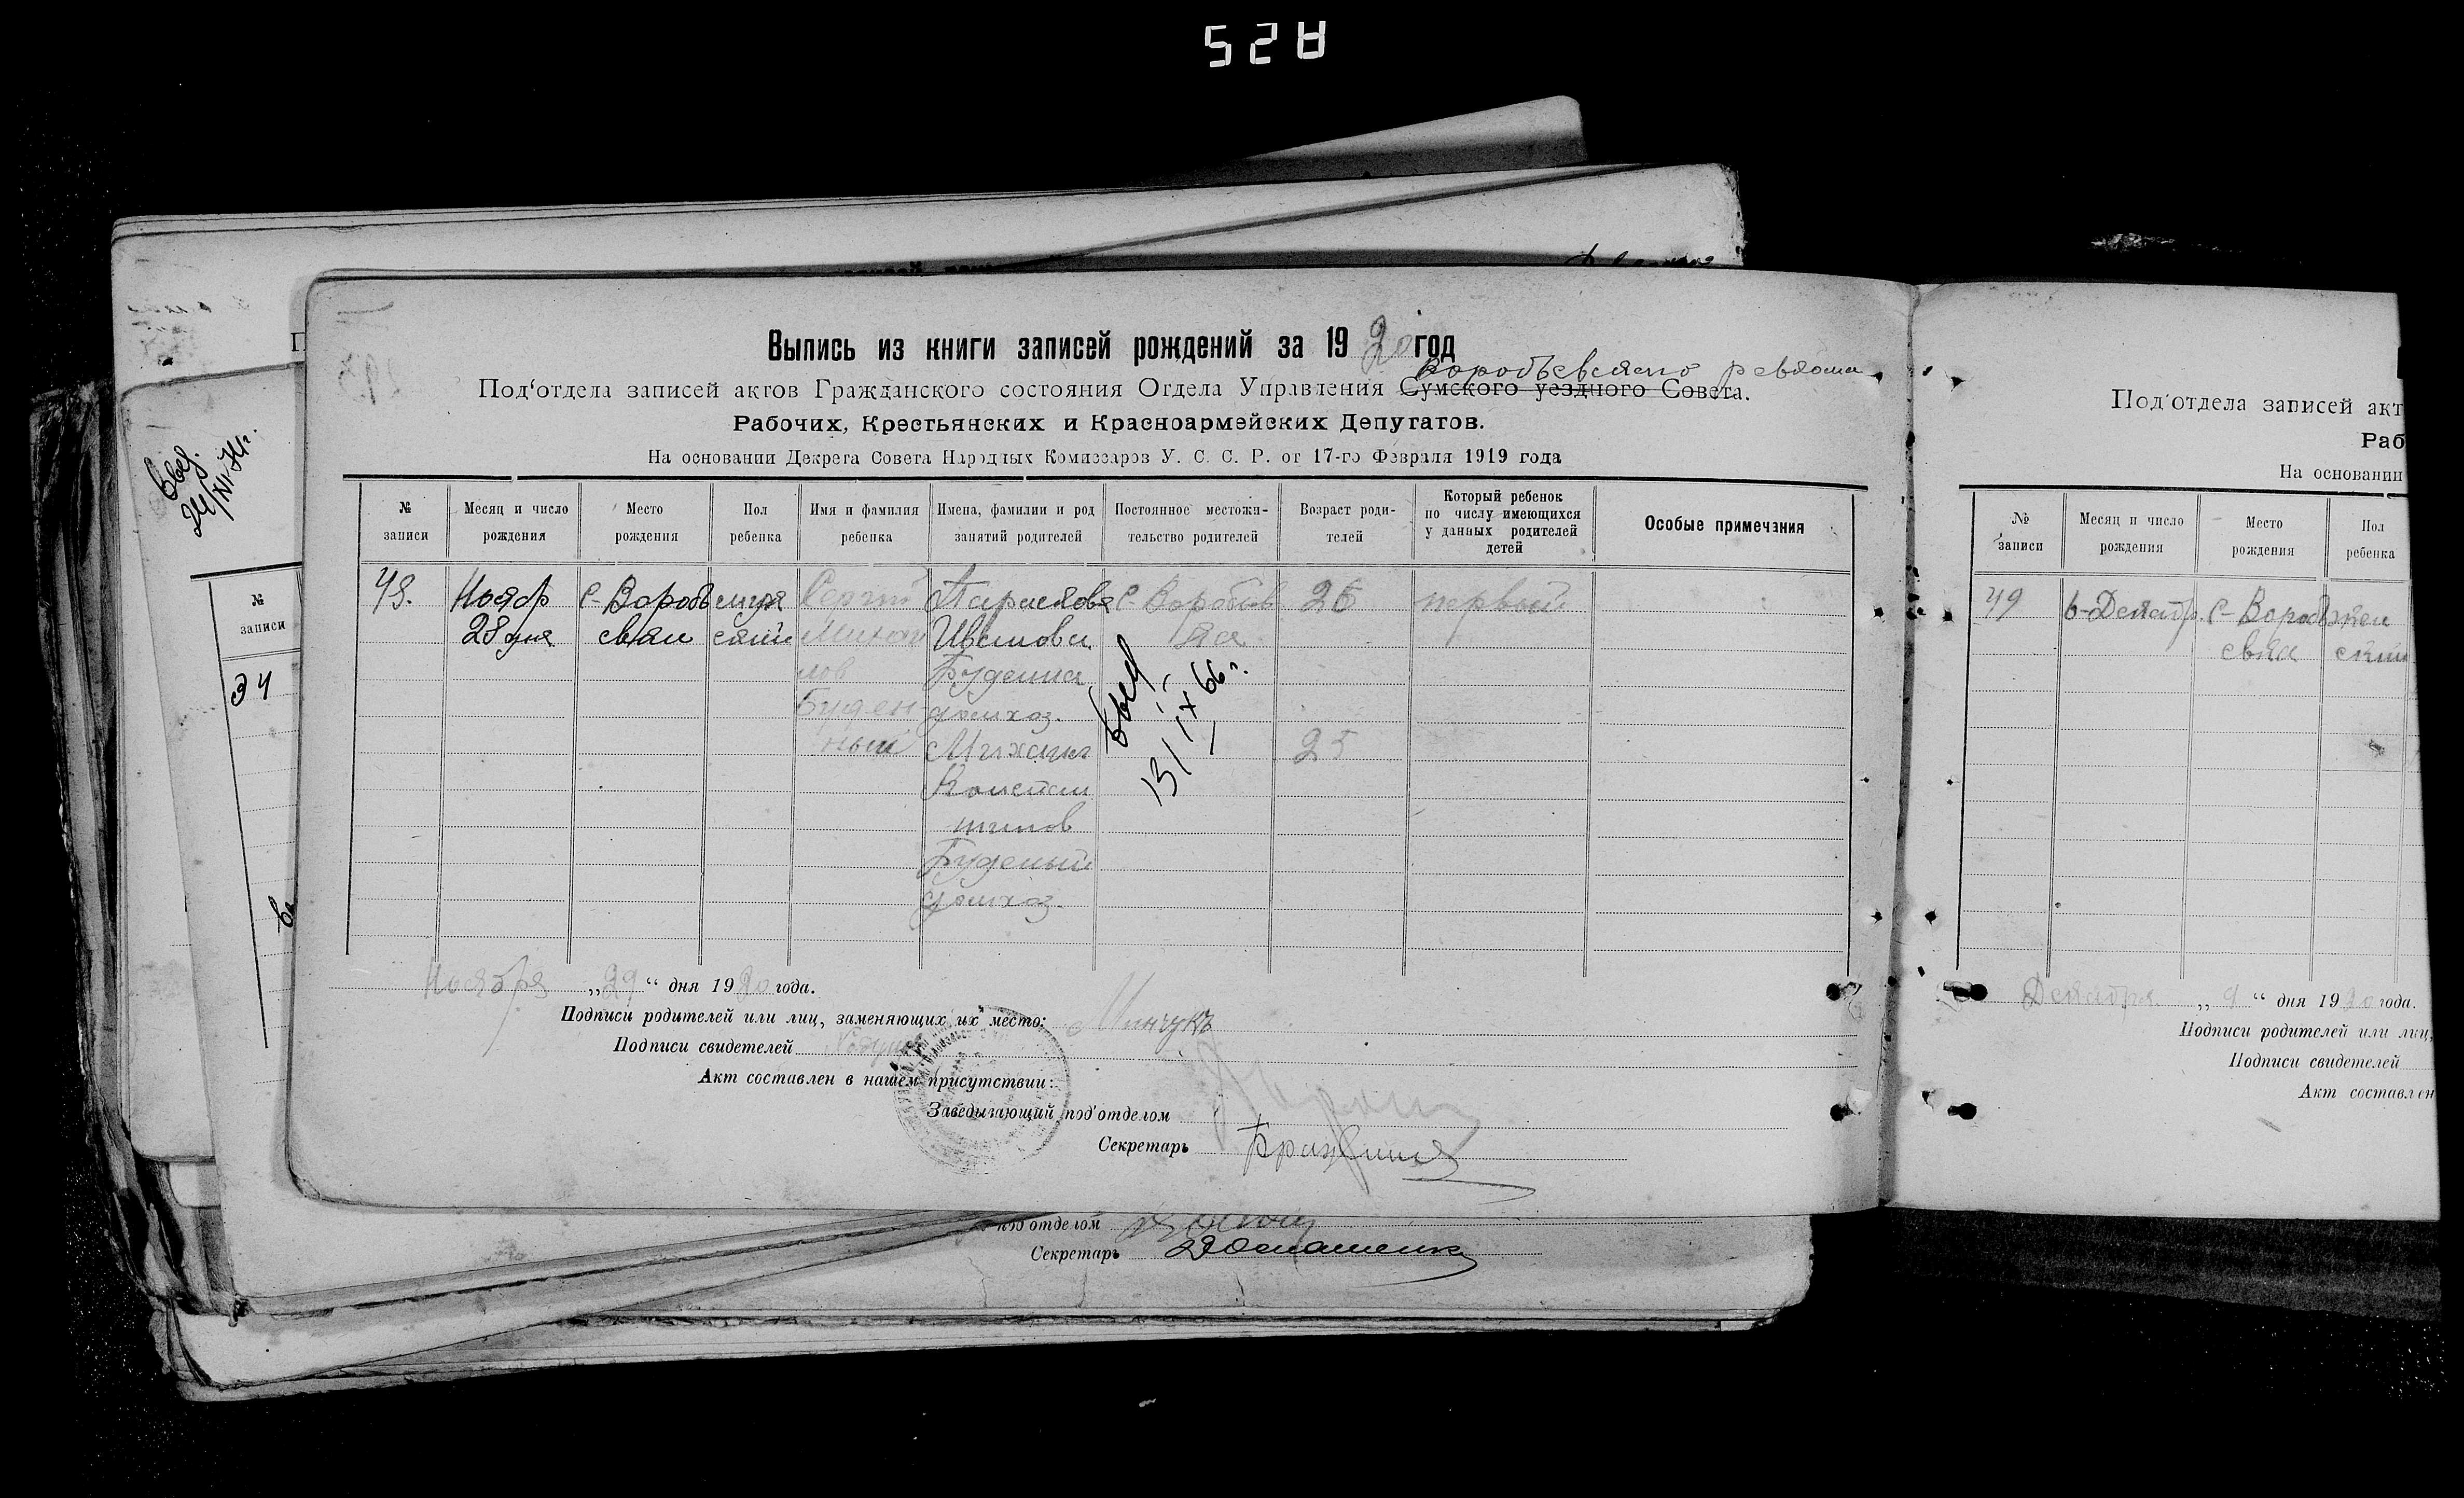 528
Выпись из книги записей рождений за 1920 год
Воробьевского ревкома
Под'отдела записей актов Гражданского состояния Отдела Управления Сумского уездного Совета.
Рабочих, Крестьянских и Красноармейских Депутатов.
На основании Декрета Совета Народных Комиссаров У. С. С. Р. от 17-го Февраля 1919 года
№ записи
Месяц и число рождения
Место рождения
Пол ребенка
Имя и фамилия ребенка
Имена, фамилии и род занятий родителей
Постоянное местожительство родителей
Возраст родителей
Который ребенок по числу имеющихся у данных родителей детей
Особые примечания
48. Ноябр С-Воробь муж Сергий Парасковья С-Воробьев 26 первый
28 дня евки ский Михай Иванова ка
лов Буденна
Буден домхоз.
ный Михаил 25
Констан
тинов
Буденый
домхоз.
13/IX 66 г.
Ноября „29“ дня 1920 года.
Подписи родителей или лиц, заменяющих их место: Минчукъ
Подписи свидетелей
Акт составлен в нашем присутствии:
Заведывающий под'отделом
Секретарь
под'отделом
Секретарь
№
записи
34
Под'отдела записей акт
Раб
На основании
№ записи
Месяц и число рождения
Место рождения
Пол ребенка
49 6-Декабр. С-Воробь жен
евка ский
Декабря „9“ дня 1920 года.
Подписи родителей или лиц,
Подписи свидетелей
Акт составлен